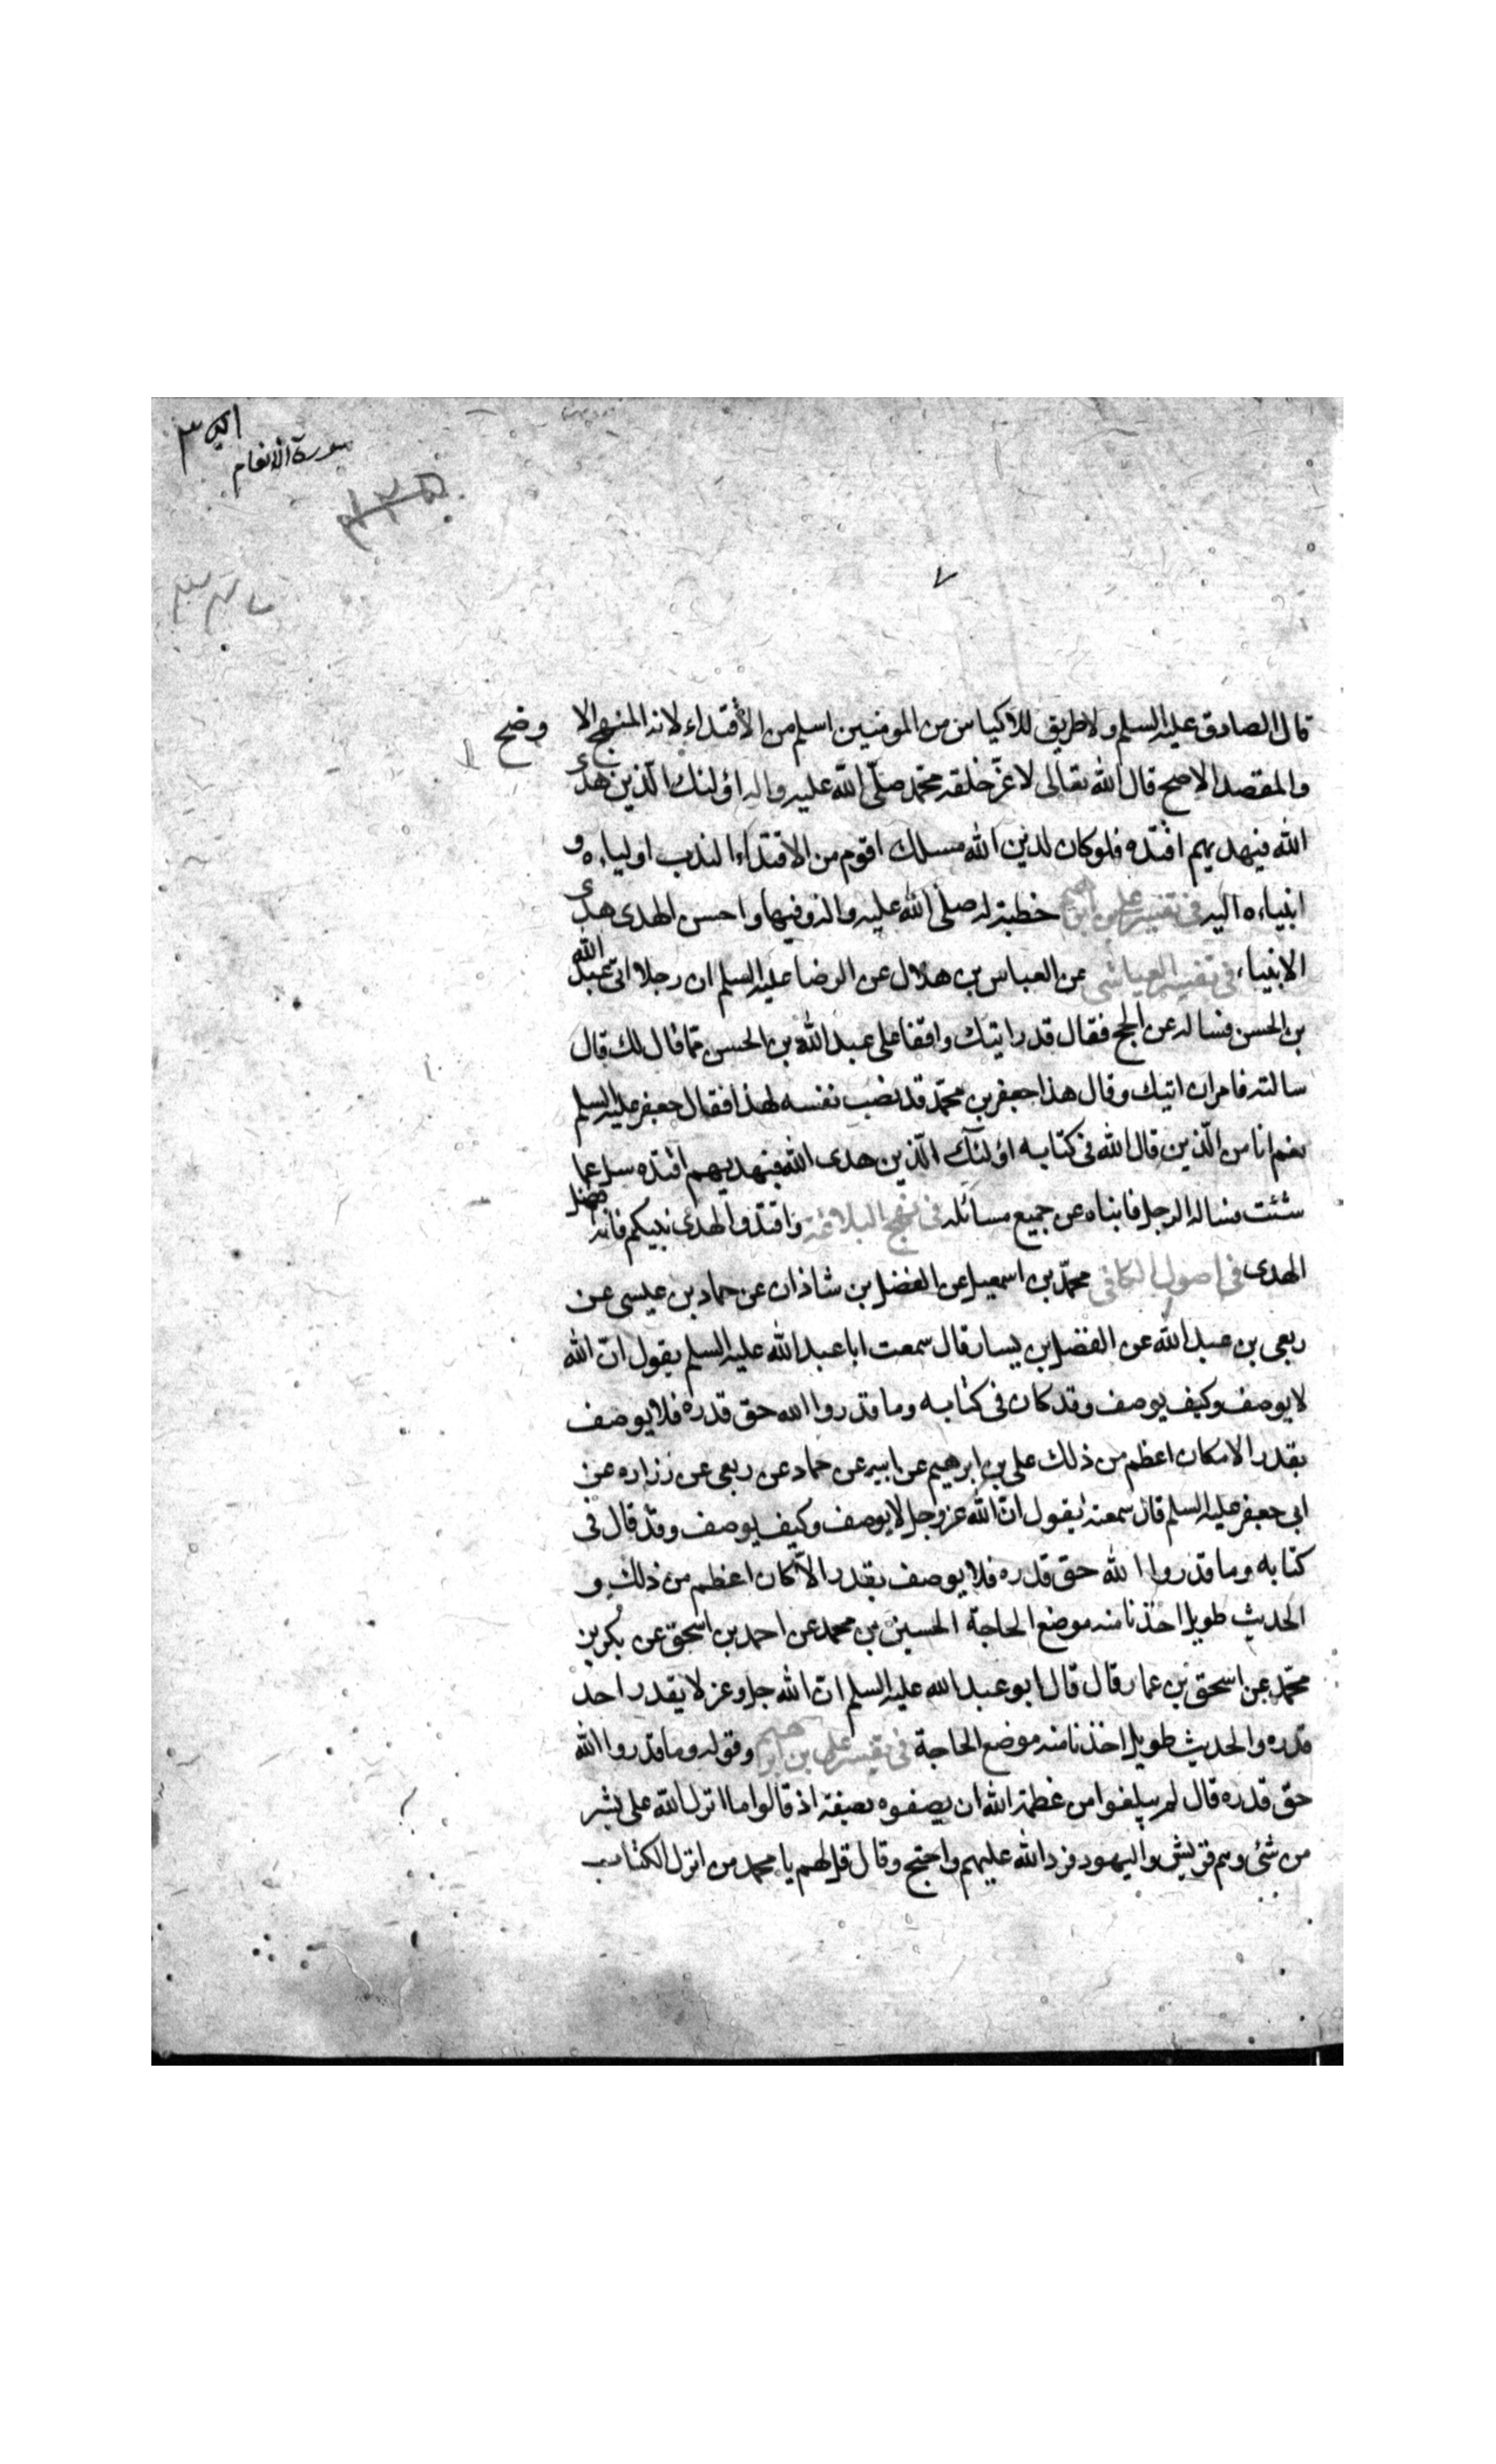 سورة الانعام
٧
قال الصادق عليه السلم ولا طريق للاكياس من المومنين اسلم من الاقتداء لانه المنهج الا وضح
والمقصد الاصح قال الله تعالى لاعز خلقه محمد صلى الله عليه واله اولئك الذين هدى
الله فبهديهم اقتده فلو كان لدين الله مسلك اقوم من الاقتداء لندب اولياءه و
انبياءه اليه في تفسير على بن ابرهيم خطبة له صلى الله عليه واله وفيها واحسن الهدى هدى
الانبياء في تفسير العياشى عن العباس بن هلال عن الرضا عليه السلم ان رجلا اتى عبد الله
بن الحسن فساله عن الحج فقال قد رايتك واقفا على عبد الله بن الحسن فما قال لك قال
سالته فامران اتيك وقال هذا جعفر بن محمد قد نصب نفسه لهذا فقال جعفر عليه السلم
نعم انا من الذين قال الله في كتابه اولئك الذين هدى الله فبهديهم اقتده سل عما
شئت فساله الرجل فانباه عن جميع مسائله في نهج البلاغة واقتدوا لهدى نبيكم فانه افضل
الهدى في اصول الكافى محمد بن اسمعيل عن الفضل بن شاذان عن حماد بن عيسى عن
ربعى بن عبد الله عن الفضل بن يسار قال سمعت ابا عبد الله عليه السلم يقول ان الله
لا يوصف وكيف يوصف وقد كان في كتابه وما قدروا الله حق قدره فلا يوصف
بقدر الا مكان اعظم من ذلك على بن ابرهيم عن ابيه عن حماد عن ربعى عن زراره عن
ابى جعفر عليه السلم قال سمعته يقول ان الله عز وجل لا يوصف وكيف يوصف وقد قال فى
كتابه وما قدروا الله حق قدره فلا يوصف بقدر الا كان اعظم من ذلك و
الحديث طويل اخذنا منه موضع الحاجة الحسين بن محمد عن احمد بن اسحق عن بكر بن
محمد عن اسحق بن عمار قال قال ابو عبد الله عليه السلم ان الله جل وعز لا يقدر احد
قدره والحديث طويل اخذنا منه موضع الحاجة في تفسير على بن ابرهيم وقوله وما قدروا الله
حق قدره قال لم يبلغوا من عظمة الله ان يصفوه بصفته اذ قالوا ما انزل الله على بشر
من شئ وهم قريش واليهود فرد الله عليهم واحتج وقال قل لهم يا محمد من انزل الكتاب